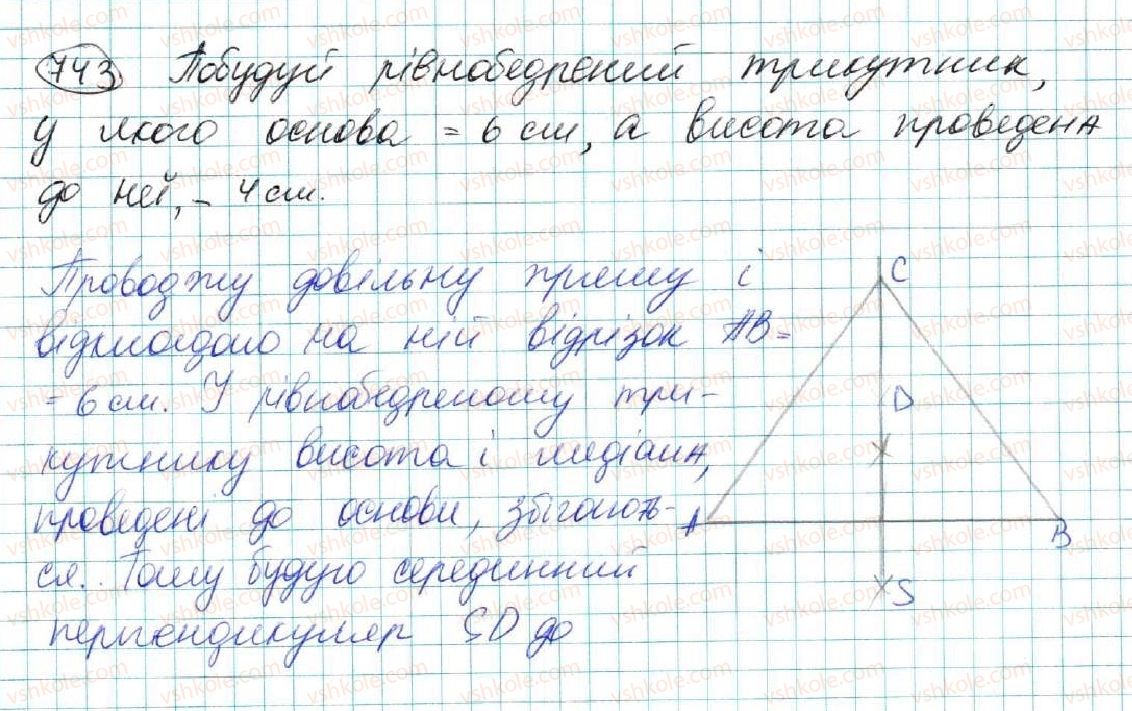 743 Побудуй рівнобедрений трикутник,
у якого основа = 6 см, а висота проведена
до неї, – 4 см.
Проводжу довільну пряму і
відкладаю на ній відрізок AB =
= 6 см. У рівнобедреному три-
кутнику висота і медіана,
проведені до основи, збігають-
ся. Тому будую серединний
перпендикуляр SD до
C
D
A
B
S
vshkole.com